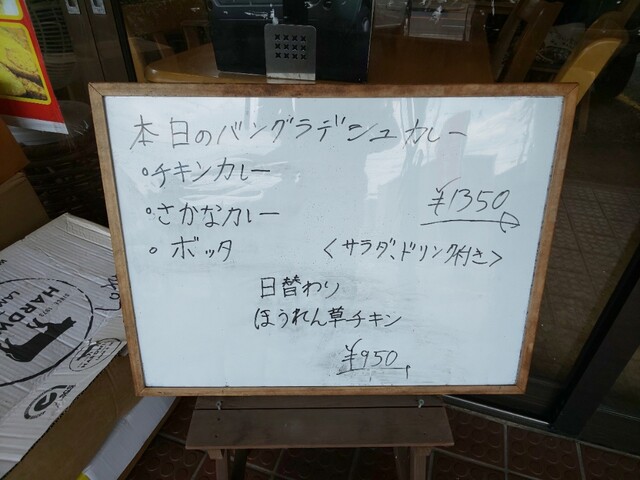 本日のバングラデシュカレー
・チキンカレー
・さかなカレー
¥1350
・ボッタ
〈サラダ、ドリンク付き〉
日替わり
ほうれん草チキン
¥950